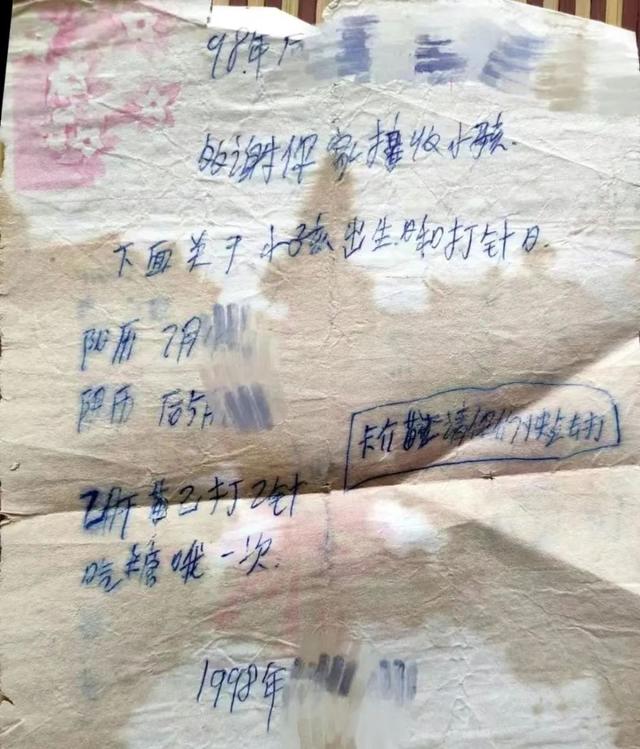 98年后
致谢你家接收小孩.
下面关于小孩出生日和打针日.
阳历 7月
阴历 后5月
卡介苗 请你们快去打
乙肝苗已打2针
吃糖哦一次.
1998年